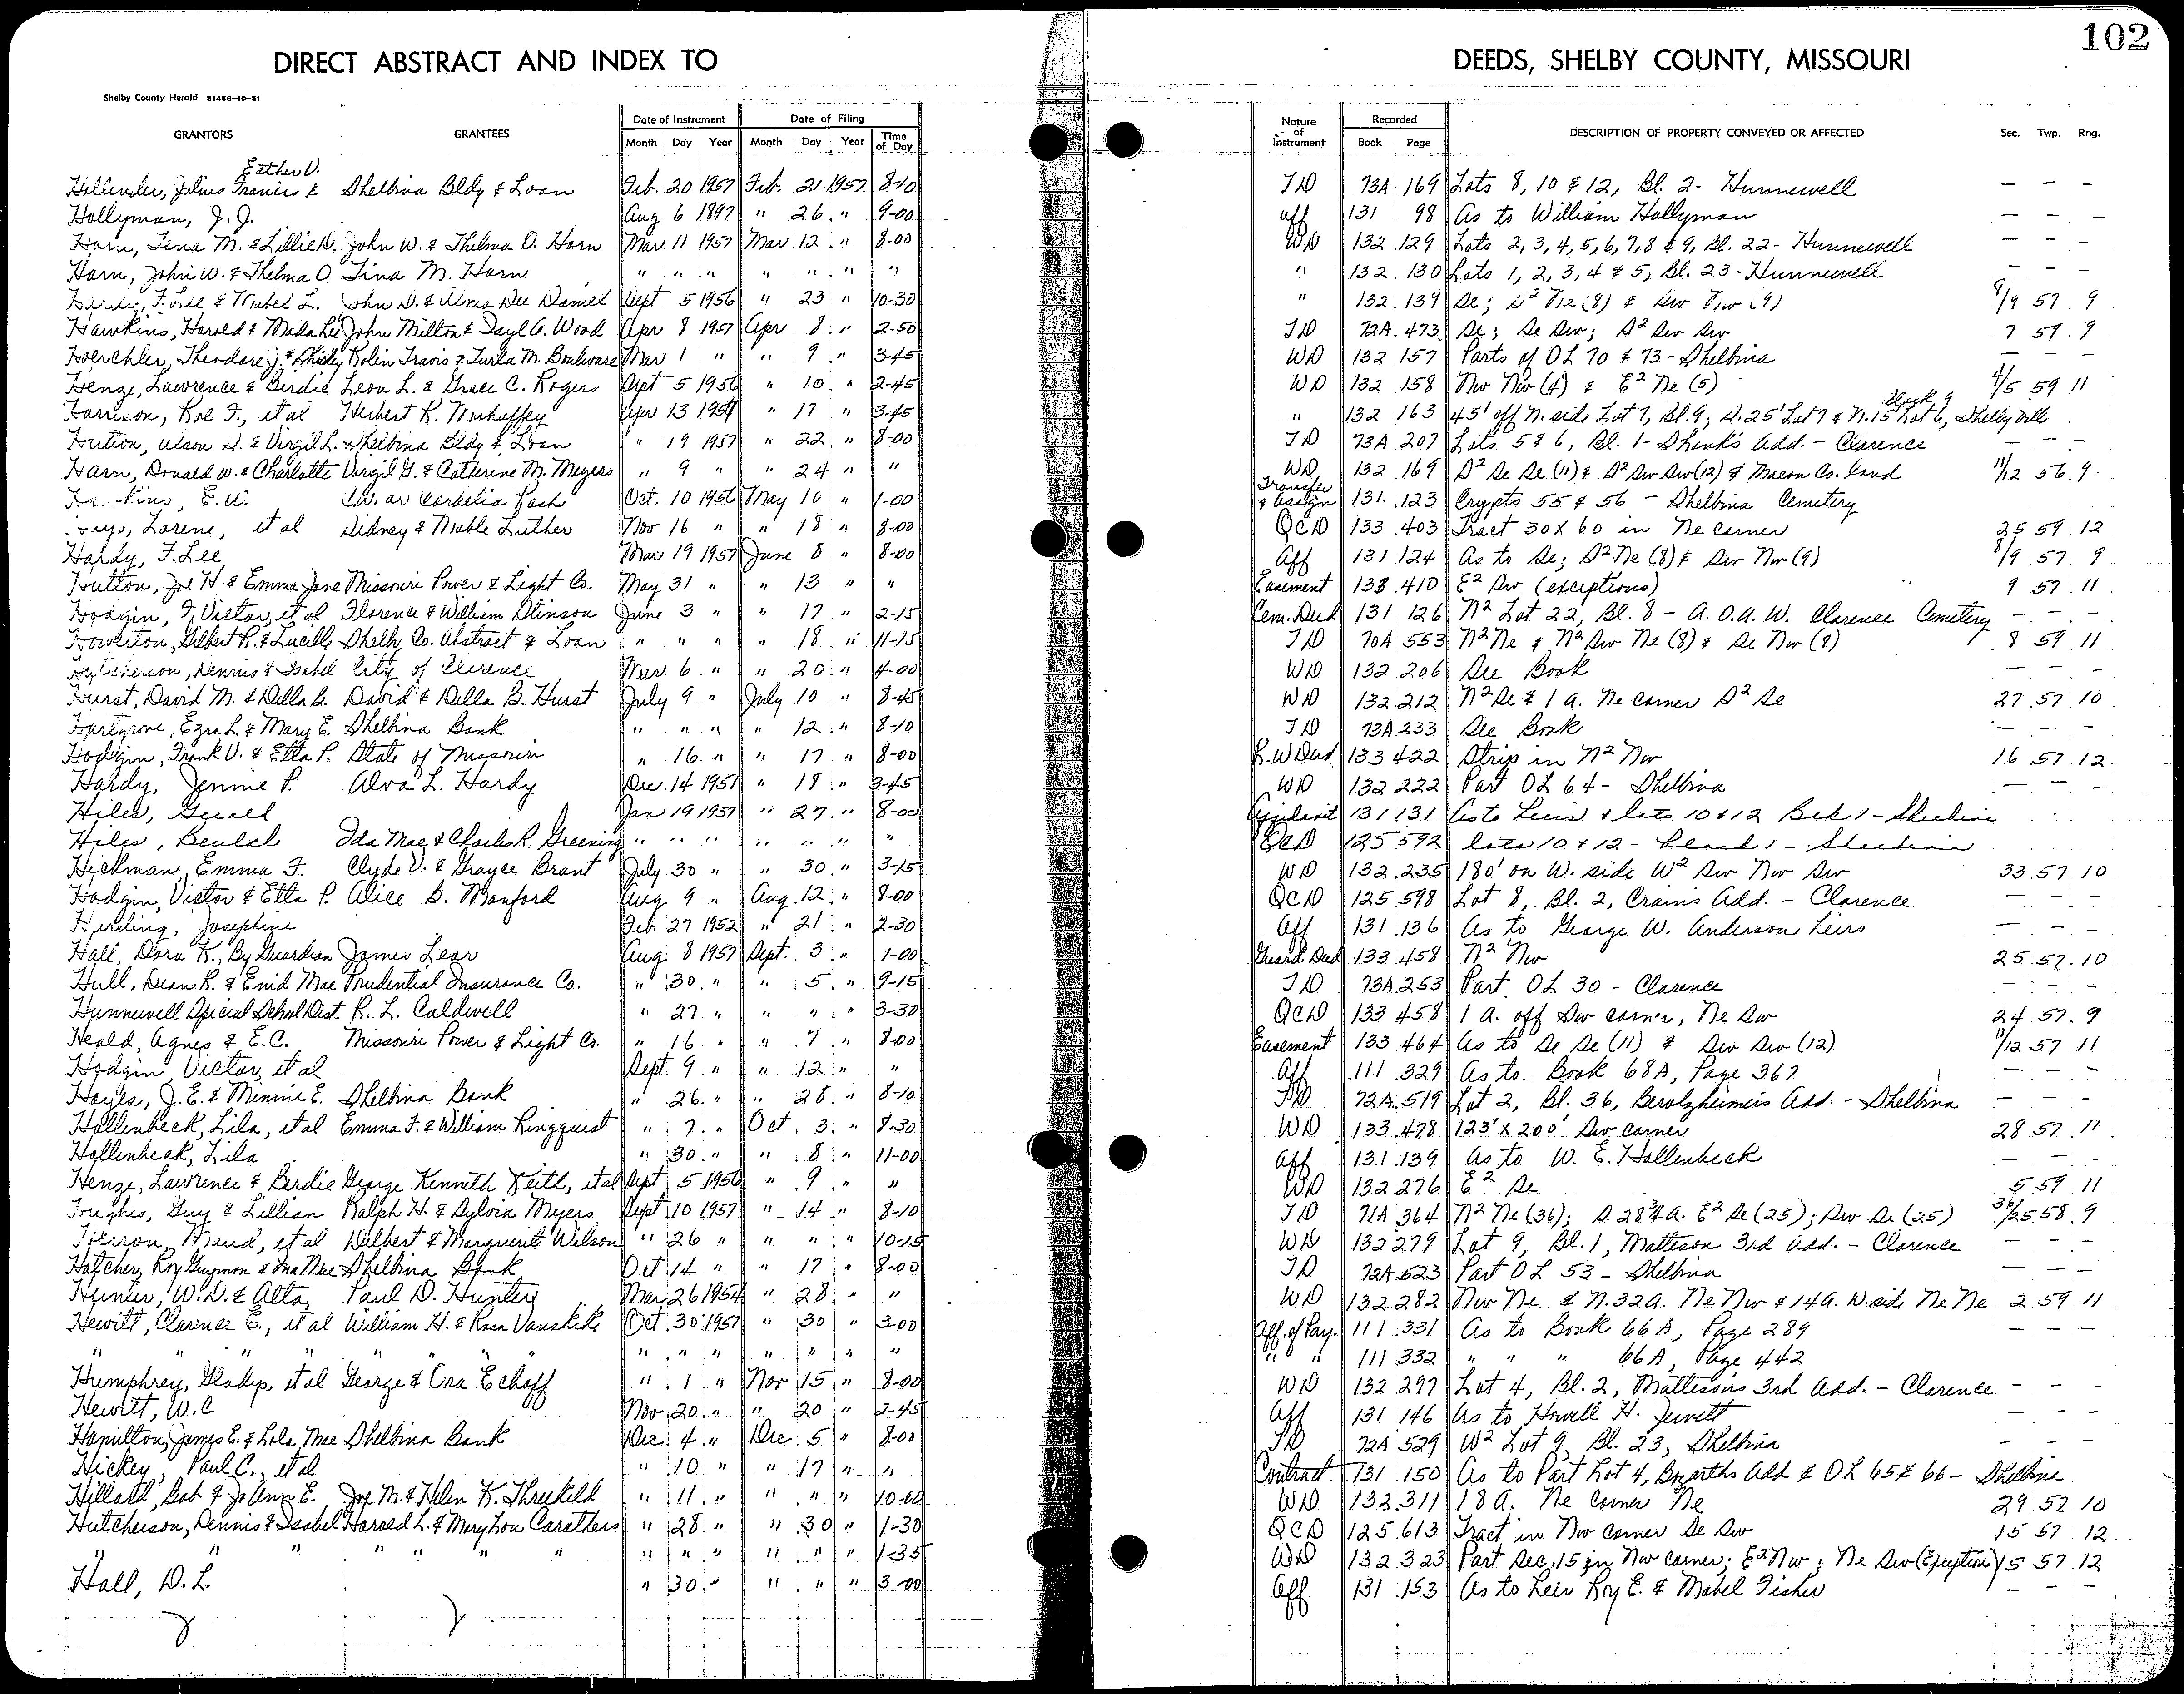 102
DIRECT ABSTRACT AND INDEX TO DEEDS, SHELBY COUNTY, MISSOURI
Shelby County Herald 51458-10-51
GRANTORS GRANTEES Date of Instrument Month Day Year Date of Filing Month Day Year Time of Day Nature of Instrument Recorded Book Page DESCRIPTION OF PROPERTY CONVEYED OR AFFECTED Sec. Twp. Rng.
Esther V.
Hollender, Julius Francis & Shelbina Bldg & Loan Feb. 20 1957 Feb. 21 1957 8-10 TD 73A 169 Lots 8, 10 & 12, Bl. 2- Hunnewell — — —
Hollyman, J. J. Aug 6 1897 " 26 " 9-00 Aff 131 98 As to William Hollyman — — —
Horn, Tena M. & Lillie D. John W. & Thelma O. Horn Mar. 11 1957 Mar. 12 " 8-00 WD 132 129 Lots 2, 3, 4, 5, 6, 7, 8 & 9, Bl. 22- Hunnewell — — —
Horn, John W. & Thelma O. Tina M. Horn " " " " " " " " 132 130 Lots 1, 2, 3, 4 & 5, Bl. 23- Hunnewell — — —
Hardy, F. Lee & Mabel L. John D. & Alma Dee Daniel Sept 5 1956 " 23 " 10-30 " 132 139 Se; S² Ne (8) & Sw Nw (9) 8/9 57 9
Hawkins, Harold & Mada Lee John Milton & Isyl A. Wood Apr 8 1957 Apr 8 " 2-50 TD 72A 473 Se; Se Sw; S² Sw Sw 7 57 9
Hoerchler, Theodore J. & Shirley Rolin Travis & Turla M. Boulware Mar 1 " " 9 " 3-45 WD 132 157 Parts of OL 70 & 73- Shelbina — — —
Henze, Lawrence & Birdie Leon L. & Grace C. Rogers Sept 5 1956 " 10 " 2-45 WD 132 158 Nw Nw (4) & E² Ne (5) 4/5 59 11
Harrison, Roe F., et al Herbert R. Mahaffey Apr 13 1954 " 17 " 3-45 " 132 163 45' off N. side Lot 7, Bl. 9; S. 25' Lot 7 & N. 15' Lot 6, Block 9 Shelbyville
Hutton, Alson S. & Virgil L. Shelbina Bldg & Loan " 19 1957 " 22 " 8-00 TD 73A 207 Lots 5 & 6, Bl. 1- Shanks Add. - Clarence — — —
Harn, Donald W. & Charlotte Virgil G. & Catherine M. Meyers " 9 " " 24 " " WD 132 169 S² Se Se (11) & S² Sw Sw (12) & Macon Co. land 11/12 56 9
E. W. Cordelia Rash Oct. 10 1956 May 10 " 1-00 Transfer & Assign 131 123 Crypts 55 & 56 - Shelbina Cemetery
Lorene, et al Sidney & Mable Luther Nov 16 " " 18 " 8-00 QCD 133 403 Tract 30 X 60 in Ne corner 25 59 12
Hardy, F. Lee Mar 19 1957 June 8 " 8-00 Aff 131 124 As to Se; S² Ne (8) & Sw Nw (9) 8/9 57 9
Hutton, Joe H. & Emma Jane Missouri Power & Light Co. May 31 " " 13 " " Easement 133 410 E² Sw (exceptions) 9 57 11
Hodgin, F. Victor, et al Florence & William Stinson June 3 " " 17 " 2-15 Cem. Deed 131 126 N² Lot 22, Bl. 8 - A. O. U. W. Clarence Cemetery — — —
Howerton, Gilbert R. & Lucille Shelby Co. Abstract & Loan " " " " 18 " 11-15 TD 70A 553 N² Ne & N² Sw Ne (8) & Se Nw (8) 8 59 11
Hutcherson, Dennis & Isabel City of Clarence Mar. 6 " " 20 " 4-00 WD 132 206 See Book — — —
Hurst, David M. & Della B. David & Della B. Hurst July 9 " July 10 " 8-45 WD 132 212 N² Se & 1 a. Ne corner S² Se 27 57 10
Hargrove, Ezra L. & Mary E. Shelbina Bank " " " " 12 " 8-10 TD 73A 233 See Book — — —
Hodgin, Frank V. & Etta P. State of Missouri " 16 " " 17 " 8-00 R. W Deed 133 422 Strip in N² Nw 16 57 12
Hardy, Jennie P. Alva L. Hardy Dec 14 1951 " 18 " 3-45 WD 132 222 Part OL 64- Shelbina — — —
Hiles, Gerald Jan 19 1957 " 27 " 8-00 Affidavit 131 131 As to Heirs & lots 10 & 12 Bek 1 - Shelbina
Hiles, Beulah Ida Mae & Charles R. Greening " " " " " " " QCD 125 592 lots 10 & 12 - Block 1 - Shelbina
Hickman, Emma F. Clyde V. & Grayce Brant July 30 " " 30 " 3-15 WD 132 235 180' on W. side W² Sw Nw Sw 33 57 10
Hodgin, Victor & Etta P. Alice B. Manford Aug 9 " Aug. 12 " 8-00 QCD 125 598 Lot 8, Bl. 2, Crains Add. - Clarence — — —
Harding, Josephine Feb. 27 1952 " 21 " 2-30 Aff 131 136 As to George W. Anderson Heirs — — —
Hall, Dora K., By Guardian James Lear Aug 8 1957 Sept. 3 " 1-00 Guard. Deed 133 458 N² Nw 25 57 10
Hull, Dean R. & Enid Mae Prudential Insurance Co. " 30 " " 5 " 9-15 TD 73A 253 Part OL 30 - Clarence — — —
Hunnewell Special School Dist. R. L. Caldwell " 27 " " " " 3-30 QCD 133 458 1 A. off Sw corner, Ne Sw 24 57 9
Heald, Agnes & E. C. Missouri Power & Light Co. " 16 " " 7 " 8-00 Easement 133 464 As to Se Se (11) & Sw Sw (12) 11/12 57 11
Hodgin, Victor, et al Sept. 9 " " 12 " " Aff 111 329 As to Book 68A, Page 367 — — —
Hayes, J. E. & Minnie E. Shelbina Bank " 26 " " 28 " 8-10 TD 72A 519 Lot 2, Bl. 36, Berolzheimers Add. - Shelbina — — —
Hollenbeck, Lila, et al Emma F. & William Ringquist " 7 " Oct. 3 " 8-30 WD 133 478 123' X 200' Sw corner 28 57 11
Hollenbeck, Lila " 30 " " 8 " 11-00 Aff 131 139 As to W. E. Hollenbeck — — —
Henze, Lawrence & Birdie George Kenneth Keith, et al Sept 5 1956 " 9 " " WD 132 276 E² Se 5 59 11
Hughes, Guy & Lillian Ralph H. & Sylvia Myers Sept 10 1957 " 14 " 8-10 TD 71A 364 N² Ne (36); S. 28¾ a. E² Se (25); Sw Se (25) 36/25 58 9
Maud, et al Wilbert & Marguerite Wilson " 26 " " " " 10-15 WD 132 279 Lot 9, Bl. 1, Matteson 3rd Add. - Clarence — — —
Hatcher, Roy Guymon & Ina Mae Shelbina Bank Oct 14 " " 17 " 8-00 TD 72A 523 Part OL 53 - Shelbina — — —
Hunter, W. D. & Alta Paul D. Hunter Mar 26 1954 " 28 " " WD 132 282 Nw Ne & N. 32 A. Ne Nw & 14 A. W. side Ne Ne 2 59 11
Hewitt, Clarence E., et al William H. & Rosa Vanskike Oct. 30 1957 " 30 " 3-00 Aff. of Pay. 111 331 As to Book 66A, Page 289 — — —
" " " " " " " " " " " " " " " " 111 332 " " " 66A, Page 442
Humphrey, Gladys, et al George & Ora Echoff " 1 " Nov 15 " 8-00 WD 132 297 Lot 4, Bl. 2, Mattesons 3rd Add. - Clarence — — —
Hewitt, W. C Nov. 20 " " 20 " 2-45 Aff 131 146 As to Howell H. Jewett — — —
Hamilton, James E. & Lola Mae Shelbina Bank Dec. 4 " Dec. 5 " 8-00 TD 72A 529 W² Lot 9, Bl. 23, Shelbina — — —
Hickey, Paul C., et al " 10 " " 17 " " Contract 131 150 As to Part Lot 4, Bozarths Add & OL 65 & 66 - Shelbina
Hillard, Bob & Jo Ann E. Joe M. & Helen K. Threlkeld " 11 " " " " 10-00 WD 132 311 18 A. Ne corner Ne 29 57 10
Hutcherson, Dennis & Isabel Harold L. & Mary Lou Carothers " 28 " " 30 " 1-30 QCD 125 613 Tract in Nw corner Se Sw 15 57 12
" " " " " " " " " " " " " 1-35 WD 132 323 Part Sec. 15 in Nw corner; E² Nw; Ne Sw (Exception) 15 57 12
Hall, D. L. " 30 " " " " 3-00 Aff 131 153 As to Heir Roy E. & Mabel Fisher — — —